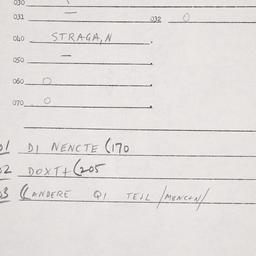 030
031 – 032 O
040 STRAGA,N
050 –
060 O
070 O
01 DI NENCTE (170
02 DOXT+ (205
03 ((ANDERE QI TEIL /MENCEN/